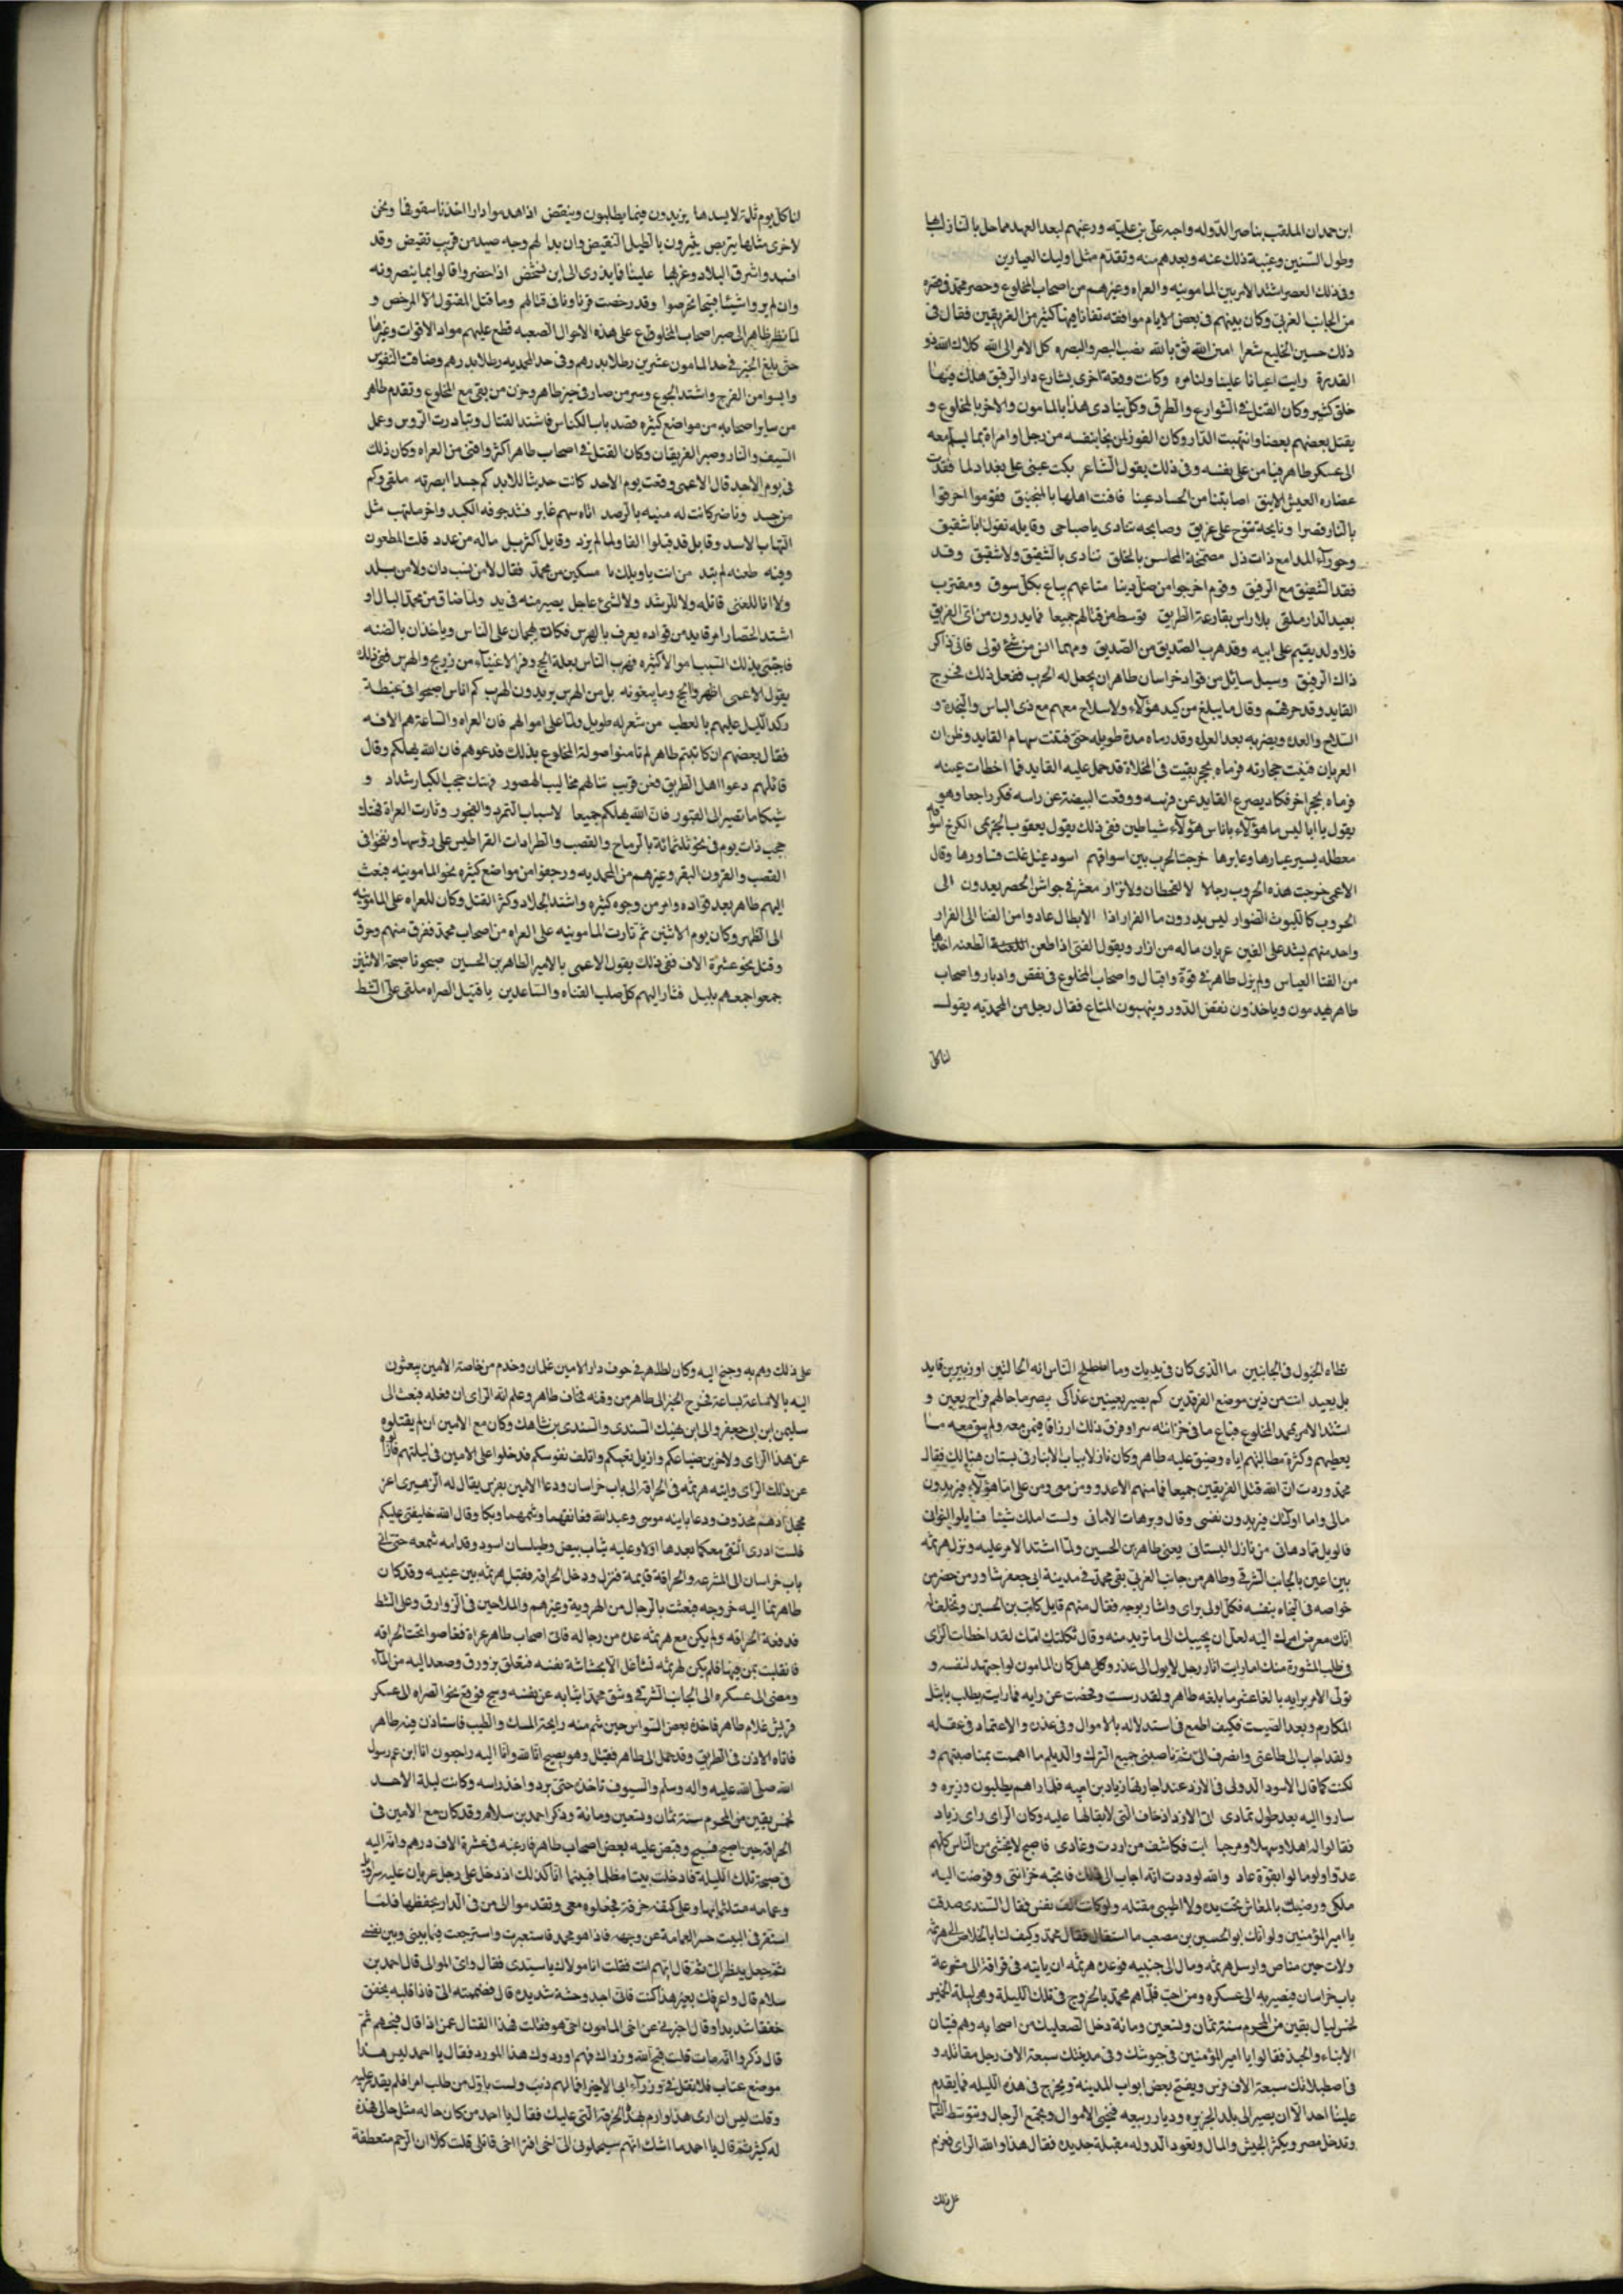 ابن حمدان الملقب بناصر الدوله واخيه علي بن عليته ورعيتهم لبعد العهد مما حل بالناز لها
وطول السنين وغيبة ذلك عنه وبعدهم منه وتقدم مثل اوليك العيارين
وفى ذلك العصر اشتد الامر بين المامونيه والعراه وغيرهم من اصحاب المخلوع وحصر محمد فى قصره
من الجانب الغربى وكان بينهم فى بعض الايام مواقفه تفانا فيها كثير من الفريقين فقال فى
ذلك حسين الخليع شعرا امين الله ثق بالله نصب البصر والبصره كل الامر الى الله كلاك الله ذو
القدرة وايت اعيانا علينا ولنا مره وكانت وقعة اخرى بشارع دار الرقيق هلك فيها
خلق كثير وكان القتل فى الشوارع والطرق وكل ينادى هذا بالمامون والاخر بالمخلوع و
يقتل بعضهم بعضا وانتهبت الدار وكان الفوز لمن نجا بنفسه من رجل او امراة بما يسلم معه
الى عسكر طاهر فيامن على نفسه وفى ذلك يقول الشاعر بكت عينى على بغداد لما فقدت
غضاره العيش الانيق اصابتنا من الحساد عينا فافنت اهلها بالمنجنيق فقوموا احرقوا
بالنار قصرا ونايحة تنوح على غريق وصايحه تنادى يا صباحى وقايله تقول ايا شقيق
وحوراء المدامع ذات ذل مضمخة المحاسن بالخلق تنادى بالشفيق ولا شفيق وقد
فقد الشفيق مع الرفيق وقوم اخرجوا من ظل دينا متاعهم يباع بكل سوق ومغترب
بعيد الدار ملقى بلا راس بقارعة الطريق توسط من قتالهم جميعا فما يدرون من اى الفريق
فلا ولد يقيم على ابيه وقد هرب الصديق من الصديق ومهما انس من شئ تولى فانى ذاكر
ذاك الرفيق وسيل سايل من قواد خراسان طاهر ان يجعل له الحرب ففعل ذلك فخرج
القايد وقد حرهم وقال ما يبلغ من كيد هولاء ولا سلاح معهم مع ذى الباس والنجدة و
السلاح والعده وبصر به بعد العراه وقد رماه مدة طويله حتى فنت سهام القايد وظن ان
العريان فنيت حجارته فرماه بحجر بقيت فى المخلاة قد حمل عليه القايد فما اخطات عينه
فرماه بحجر اخر فكاد يصرع القايد عن فرسه ووقعت البيضة عن راسه فكر راجعا وهو
يقول يا ابا ليس ما هولاء بناس هولاء شياطين ففى ذلك يقول يعقوب الخزيمى الكرخ اسواقه
معطله يسير عيارها وعابرها خرجت الحرب بين اسواقهم اسود غيل غلت قساورها وقال
الاعمى خرجت هذه الحروب رجالا لا لقحطان ولا نزار معشر فى جواشن الحصر يعدون الى
الحروب كالليوث الضوار ليس يدرون ما الفرار اذا الابطال عادوا من القنا الى الفرار
واحد منهم يشد على الفين عريان ماله من ازار ويقول الفتى اذا طعن الطعنه خذها
من الفتا العياس ولم يزل طاهر فى قوة واقبال واصحاب المخلوع فى نقض وادبار واصحاب
طاهر يهدمون وياخذون نقض الدور وينهبون المتاع فقال رجل من المحمديه يقول
لنا كل
لنا كل يوم ثلمة لا يسدها يزيدون فيما يطلبون وينقص اذا هدموا دارا اخذنا سقوفها ونحن
لاخرى مثلها يتربص يثيرون بالطبل القنيص وان بدا لهم وجه صيد من قريب تقيض وقد
افسد واشرق البلاد وغربها علينا فما يدرى الى اين نشخص اذا حضروا قالوا بما يبصرونه
وان لم يروا شيئا قبيحا تخرصوا وقد رخصت قراونا فى قتالهم وما قتل المقتول الا المرخص و
لما نظر طاهر الى صبر اصحاب المخلوع على هذه الاحوال الصعبه قطع عليهم مواد الاقوات وغيرها
حتى بلغ الخبز فى حد المامون عشرين رطلا بدرهم وفى حد المحمديه رطلا بدرهم وضاقت النفوس
وايسوا من الفرج واشتد الجوع وسر من صار فى حيز طاهر وحزن من بقى مع المخلوع وتقدم طاهر
من ساير اصحابه من مواضع كثيره فقصد باب الكناس فاشتد القتال وتبادرت الروس وعمل
السيف والنار وصبر الفريقان وكان القتل فى اصحاب طاهر اكثر وافنى من العراه وكان ذلك
فى يوم الاحد قال الاعمى وقعت يوم الاحد كانت حديثا للابد كم جسدا ابصرته ملقى وكم
من جسد وناضر كانت له منيه بالرصد اتاه سهم غابر فشد جوفه الكبد واخر ملتهب مثل
التهاب الاسد وقايل قد قتلوا الفا ولما لم يزد وقايل اكثر بل ماله من عدد قلت المطعون
وفيه طعنه لم تيد من انت يا ويلك يا مسكين من محمد فقال لا من نسب دان ولا من بلد
ولا انا للغى قاتله ولا للرشد ولا لشئ عاجل يصير منه فى يد ولما ضاق من محمد البال او
اشتد الحصار امر قايد من قواده يعرف بالهرس فكان يهجمان على الناس وياخذان بالظنه
فاجتبى بذلك السبب اموالا كثيره فهرب الناس بعلة الحج وفر الاغنياء من زريح والهرس ففى ذلك
يقول الاعمى اظهروا الحج وما يبغونه بل من الهرس يريدون الهرب كم اناس اصبحوا فى غبطة
وكد الليل عليهم بالعطب من شعر له طويل ولما على اموالهم فان العراه والساعة هم الافه
فقال بعضهم ان كاتبتم طاهر لم تامنوا صولة المخلوع بذلك فدعوهم فان الله يهلكهم وقال
قائلهم دعوا اهل الطريق فعن قريب تنالهم مخاليب الهصور فتهتك حجب الكباد شداد و
شيكا ما تصير الى القبور فان الله يهلكهم جميعا لاسباب التمرد والفجور وثارت العراة فهتك
حجب ذات يوم فى نحو ثلثمائة بالرماح والقصب والطرادات القراطيس على رؤسها ونفخوا فى
القصب والقرون البقر وغيرهم من المحمديه ورجعوا من مواضع كثيره نحو المامونيه فبعث
اليهم طاهر بعد قواده وامر من وجوه كثيره واشتد الجلاد وكثر القتل وكان للعراه على المامونيه
الى الظهر وكان يوم الاثنين ثم ثارت المامونيه على العراه من اصحاب محمد فغرق منهم وحرق
وقتل نحو عشرة الاف ففى ذلك يقول الاعمى بالامير الطاهر بن الحسين صبحونا صبحة الاثنين
جمعوا جمعهم بليل فثار اليهم كل صلب القناه والساعدين يا قتيل الصراه ملقى على الشط
تطاه الخيول فى الجانبين ما الذى كان فى يديك وما اصطلح الناس انه الحالتين اوزبير بن قايد
بل بعيد انت من ذين موضع الفرقدين كم بصير بعينين غذا كى يبصر ما حالهم فراح بعين و
اشتد الامر بمحمد المخلوع فباع ما فى خزائنه سرا وفرق ذلك ارزاقا فيمن معه ولم يبق معه ما
يعطيهم وكثرة مطالبتهم اياه وضيق عليه طاهر وكان نازلا بباب الانبار فى بستان هنالك فقال
محمد وددت ان الله قتل الفريقين جميعا فما منهم الا عدو ومن معى ومن على اما هولاء فيريدون
مالى واما اولئك فيريدون نفسى وقال
ولما اشتد الامر عليه ونزل هرثمه
بين اعين بالجانب الشرقى وطاهر من جانب الغربى بقى محمد فى مدينة ابى جعفر شاور من حضر من
خواصه فى النجاه بنفسه فكل اولى براى واشار بوجه فقال منهم قايل كاتب بن الحسين وتحلف له
انك معرض امرك اليه لعل ان يجيبك الى ما تريد منه وقال ثكلتك امك لقد اخطات الراى
فى طلب المشورة منك اما رايت اثار رجل لا يول الى عذر وكل هل كان المامون لو اجتهد لنفسه و
تولى الامر برايه بالغا عشر ما بلغه طاهر ولقد رست وفحصت عن رايه فما رايت يطلب باثيل
المكارم وبعد الصيت فكيف اطمع فى استدلاله بالاموال وفى غدره والاعتماد فى عقله
ولقد اجاب الى طاعتى وانصرف الى ثم ناصبنى جميع الترك والديلم ما اهممت بمناصبتهم و
لكنت كما قال الاسود الدولى فى الازد عند اجارتها زياد بن ابيه فلما راهم يطلبون وزيره و
ساروا اليه بعد طول تمادى اتى الازد اذ خاف التى لا بقالها عليه وكان الراى راى زياد
فقالوا له اهلا وسهلا ومرحبا ابت فكاشف من اردت وعادى فاصبح لا يخشى من الناس كلهم
عدوا ولو مالوا بقوة عاد والله لوددت انه اجاب الى ذلك فابحته خزائنى وفوضت اليه
ملكى ورضيت بالمعاش تحت يده ولا اظنى مفلته ولو كانت الف نفس فقال السندى صدقت
يا امير المؤمنين ولو انك ابو الحسين بن مصعب ما استقال فقال محمد وكيف لنا بالخلاص الى هرثمه
ولات حين مناص وارسل هرثمه ومال الى جنبيه فوعده هرثمه ان ياتيه فى قرافة الى مشرعة
باب خراسان فيصير به الى عسكره ومن احب فلما هم محمد بالخروج فى تلك الليلة وهى ليلة الخميس
لخمس ليال بقين من المحرم سنة ثمان وتسعين ومائة دخل الصعاليك من اصحابه وهم فتيان
الابناء والجند فقالوا يا امير المؤمنين فى جيوشك وفى مدينتك سبعة الاف رجل مقاتله و
فى اصطبلاتك سبعة الاف فرس ويفتح بعض ابواب المدينة ويخرج فى هذه الليله فما يقدم
علينا احد الا ان يصير الى بلد الجزيره وديار ربيعه فنجبى الاموال ويجتمع الرجال ونتوسط الشام
وندخل مصر ويكثر الجيش والمال وتعود الدوله مقبلة جديده فقال هذا والله الراى فعزم
على ذلك
على ذلك وهم به وجنح اليه وكان لطاهر فى جوف دار الامين غلمان وخدم من خاصة الامين يبعثون
اليه بالاخبار ساعة بساعة فخرج الخبر الى طاهر من وقته فخاف طاهر وعلم انه الراى ان فعله فبعث الى
سليمن ابن ابى جعفر والى ابن نهيك السندى والسندى بن شاهك وكان مع الامين ان لم يقتلوه
عن هذا الراى ولاخربن ضياعكم وازيل نعمكم واتلف نفوسكم فدخلوا على الامين فى ليلتهم فازالوه
عن ذلك الراى واتيه هرثمه فى الحراقة الى باب خراسان ودعا الامين بفرس يقال له الزهيرى اغر
محجل ادهم محذوف ودعا بابنيه موسى وعبد الله فعانقهما وشمهما وبكا وقال الله خليفتى عليكم
فلست ادرى التقى معكما بعدها اولا وعليه ثياب بيض وطيلسان اسود وقدامه شمعه حتى اتى
باب خراسان الى المشرعه والحراقة قايمة فنزل ودخل الحراقه فقبل هرثمه بين عينيه وقد كان
طاهر نما اليه خروجه فبعث بالرجال من الهرويه وغيرهم والملاحين فى الزوارق وعلى الشط
فدفعة الحراقه ولم يكن مع هرثمه عده من رجاله فاتى اصحاب طاهر عراة فغاصوا تحت الحراقه
فانقلبت بمن فيها فلم يكن لهرثمه شاغل الا بحشاشة نفسه فتعلق بزورق وصعد اليه من الماء
ومضى الى عسكره الى الجانب الشرقى وشق محمد ثيابه عن نفسه وسبح فوقع نحو الصراه الى عسكر
قريش غلام طاهر فاخذه بعض السواس حين شم منه رايحة المسك والطيب فاستاذن فيه طاهر
فاتاه الاذن فى الطريق وقد حمل الى طاهر فقتل وهو يصيح انا لله وانا اليه راجعون انا ابن عم رسول
الله صلى الله عليه واله وسلم والسيوف تاخذه حتى برد واخذ راسه وكانت ليلة الاحد
لخمس بقين من المحرم سنة ثمان وتسعين ومائة وذكر احمد بن سلام وقد كان مع الامين فى
الحراقة حين اصبح فسبح وقبض عليه بعض اصحاب طاهر فارغبه فى عشرة الاف درهم وانه اليه
فى صبحة تلك الليلة فادخلت بيتا مظلما فبينما انا كذلك اذ دخل على رجل عريان عليه سراويل
وعمامه متلثما بها وعلى كتفه خرقة فجعلوه معى وتقدموا الى من فى الدار بحفظها فلما
استقر فى البيت حسر العمامة عن وجهه فاذا هو محمد فاستعبرت واسترجعت فيما بينى وبين نفسى
ثم جعل ينظر الى ثم قال ايهم انت فقلت انا مولاك يا سيدى فقال واى الموالى قال احمد بن
سلام قال واعرفك بغير هذا كنت فاتى اجد وحشة شديده قال فضممته الى فاذا قلبه يخفق
خفقا شديدا وقال اخبرنى عن اخى المامون احى هو فقلت فهذا القتال عمن اذا قال قبحهم ثم
قال ذكروا انه مات قلت قبح الله وزراك فهم اوردوك هذا المورد فقال يا احمد ليس هذا
موضع عتاب فلا تقل فى وزراء ابى الا خيرا فما لهم ذنب ولست باول من طلب امرا فلم يقدر عليه
وقلت ليس ازارى هذا وارم بهذه الخرقة التى عليك فقال يا احمد من كان حاله مثل حالى فهذه
له كثير ثم قال يا احمد ما اشك انهم سيحملونى الى اخى افترا اخى قاتلى قلت كلا ان الرحم متعطفة